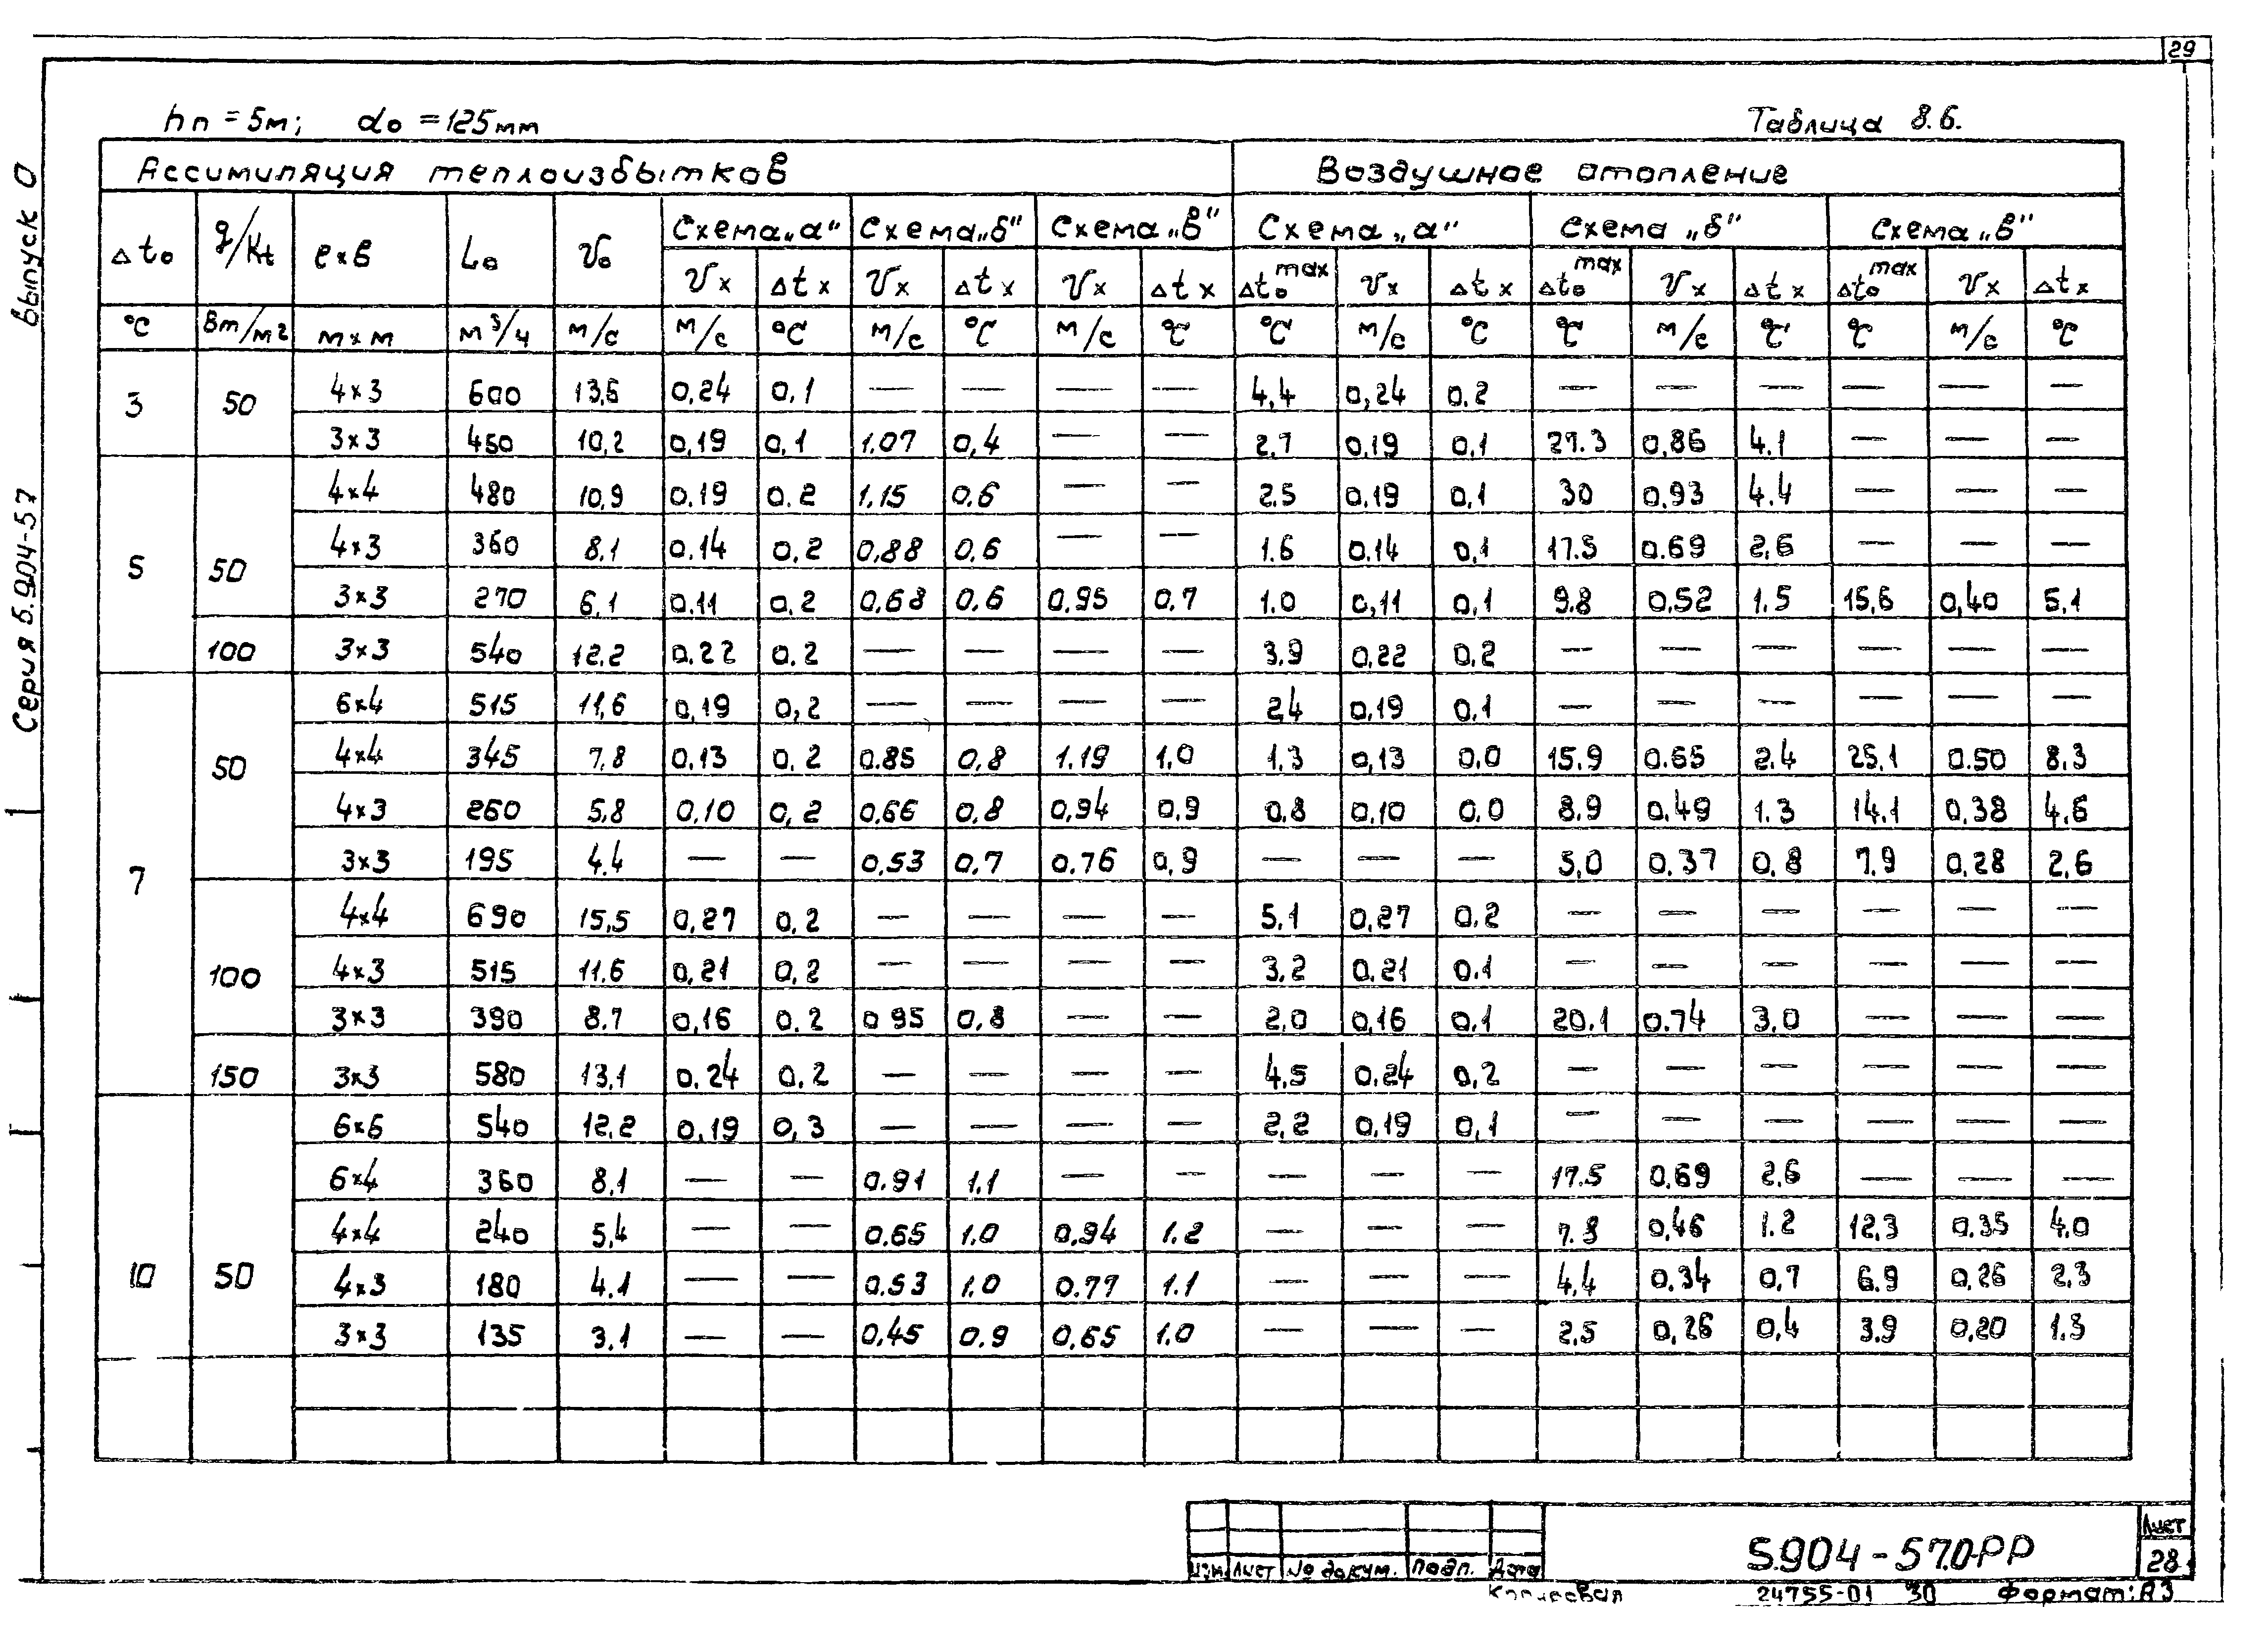 29
hп = 5м; do = 125мм
Таблица 8.6.
Ассимиляция теплоизбытков Воздушное отопление
Δto q/Kt l×в Lo Vo Схема „а" Схема „б" Схема „в" Схема „а" Схема „б" Схема „в"
Vx Δtx Vx Δtx Vx Δtx Δto max Vx Δtx Δto max Vx Δtx Δto max Vx Δtx
°C Вт/м2 м×м м3/ч м/с м/с °C м/с °C м/с °C °C м/с °C °C м/с °C °C м/с °C
3 50 4×3 600 13,6 0,24 0,1 — — — — 4,4 0,24 0.2 — — — — — —
3×3 450 10,2 0,19 0,1 1.07 0,4 — — 2,7 0,19 0,1 27.3 0,86 4.1 — — —
5 50 4×4 480 10,9 0,19 0.2 1,15 0,6 — — 2,5 0,19 0,1 30 0,93 4.4 — — —
4×3 360 8,1 0,14 0,2 0,88 0,6 — — 1.6 0,14 0,1 17.5 0.69 2,6 — — —
3×3 270 6,1 0,11 0,2 0,68 0,6 0,95 0,7 1.0 0,11 0,1 9.8 0,52 1.5 15,6 0,40 5,1
100 3×3 540 12,2 0,22 0,2 — — — — 3,9 0,22 0,2 — — — — — —
7 50 6×4 515 11,6 0,19 0,2 — — — — 2,4 0,19 0,1 — — — — — —
4×4 345 7,8 0,13 0,2 0.85 0,8 1.19 1,0 1.3 0,13 0,0 15.9 0.65 2.4 25,1 0.50 8.3
4×3 260 5,8 0,10 0,2 0,66 0,8 0,94 0,9 0,8 0,10 0,0 8,9 0,49 1.3 14,1 0,38 4,6
3×3 195 4.4 — — 0,53 0,7 0.76 0,9 — — — 5,0 0.37 0,8 7,9 0,28 2,6
100 4×4 690 15,5 0,27 0,2 — — — — 5,1 0,27 0,2 — — — — — —
4×3 515 11,6 0,21 0,2 — — — — 3,2 0,21 0.1 — — — — — —
3×3 390 8.7 0,16 0.2 0 95 0,8 — — 2,0 0,16 0,1 20.1 0.74 3,0 — — —
150 3×3 580 13,1 0,24 0,2 — — — — 4,5 0,24 0,2 — — — — — —
10 50 6×6 540 12,2 0,19 0,3 — — — — 2,2 0,19 0,1 — — — — — —
6×4 360 8,1 — — 0.91 1,1 — — — — — 17.5 0,69 2,6 — — —
4×4 240 5,4 — — 0,65 1.0 0,94 1.2 — — — 7.8 0,46 1.2 12,3 0.35 4,0
4×3 180 4.1 — — 0,53 1.0 0.77 1.1 — — — 4,4 0.34 0,7 6.9 0,26 2,3
3×3 135 3,1 — — 0,45 0.9 0,65 1.0 — — — 2,5 0,26 0,4 3.9 0,20 1.3
Серия 5.904-57 выпуск 0
Изм. Лист № докум. Подп. Дата
5.904-57.0РР
Лист
28
Копировал 24755-01 30 Формат: А3